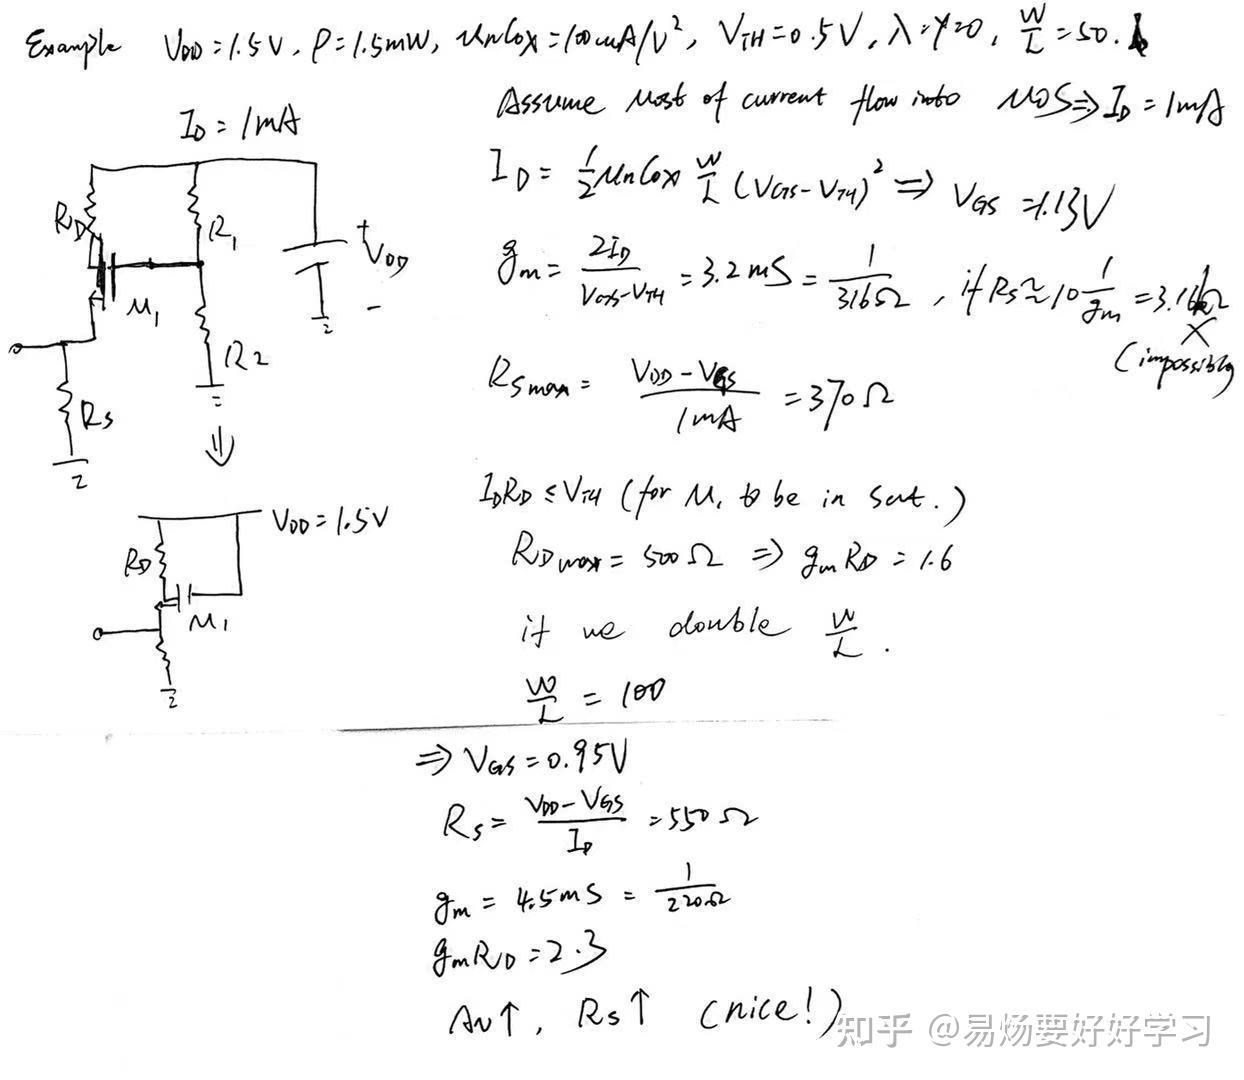 Example VDD=1.5V, P=1.5mW, μnCox=100μA/V², VTH=0.5V, λ=γ=0, W/L=50.
Assume Most of current flow into MOS⇒ID=1mA
ID=1mA
ID=1/2μnCox W/L(VGS-VTH)²⇒VGS=1.13V
gm=2ID/VGS-VTH=3.2mS=1/316Ω, if RS≈10 1/gm=3.16kΩ
×
(impossible)
RSmax=VDD-VGS/1mA=370Ω
RD
R1
+
VDD
-
M1
R2
RS
IDRD≤VTH (for M1 to be in sat.)
RDmax=500Ω⇒gmRD=1.6
if we double W/L.
W/L=100
VDD=1.5V
RD
M1
⇒VGS=0.95V
RS=VDD-VGS/ID=550Ω
gm=4.5mS=1/220Ω
gmRD=2.3
AV↑, RS↑ (nice!)
知乎 @易炀要好好学习